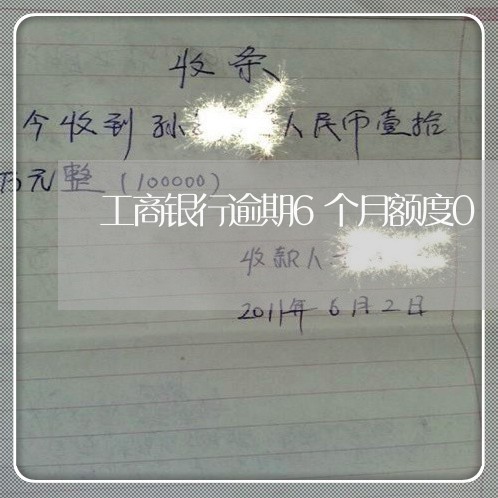 收条
今收到孙 人民币壹拾
万元整(100000)
工商银行逾期6个月额度0
收款人
2011年6月2日